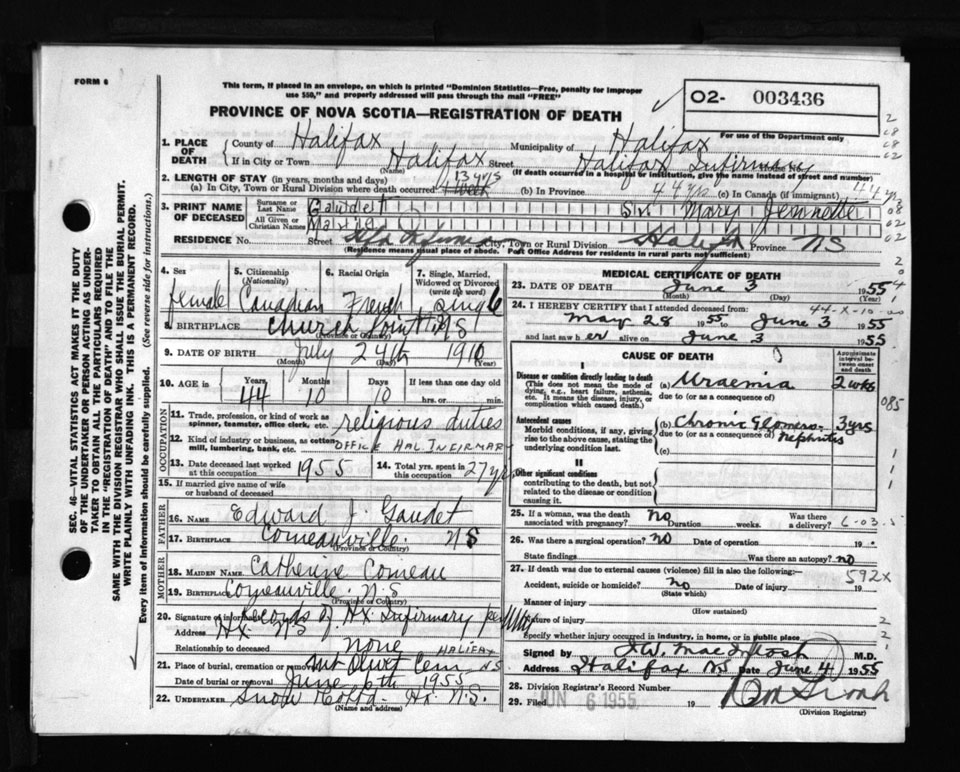 FORM 6
This form, if placed in an envelope, on which is printed "Dominion Statistics—Free, penalty for improper
use $50," and properly addressed will pass through the mail "FREE"
PROVINCE OF NOVA SCOTIA—REGISTRATION OF DEATH
O2- 003436
For use of the Department only
1. PLACE OF DEATH
County of Halifax
Municipality of Halifax
If in City or Town Halifax Street Halifax Infirmary
(Name)
(If death occurred in a hospital or institution, give the name instead of street and number)
2. LENGTH OF STAY (in years, months and days) 13 yrs
(a) In City, Town or Rural Division where death occurred 1 week (b) In Province 44 yrs (c) In Canada (if immigrant) 44 yrs
3. PRINT NAME OF DECEASED
Surname or Last Name Gaudet Sr. Mary Jennette
All Given or Christian Names
RESIDENCE No. Street City, Town or Rural Division Halifax Province NS
(Residence means usual place of abode. Post Office Address for residents in rural parts not sufficient)
4. Sex female
5. Citizenship (Nationality) Canadian
6. Racial Origin French
7. Single, Married, Widowed or Divorced (write the word) Single
8. BIRTHPLACE Church Point NS
(Province or Country)
9. DATE OF BIRTH July 24th 1910
(Month) (Day) (Year)
10. AGE Years 44 Months 10 Days 10 If less than one day old hrs. or min.
OCCUPATION
11. Trade, profession, or kind of work as spinner, teamster, office clerk, etc. religious duties
12. Kind of industry or business, as cotton mill, lumbering, bank, etc. OFFICE HAL INFIRMARY
13. Date deceased last worked at this occupation 1955
14. Total yrs. spent in this occupation 27 yrs
15. If married give name of wife or husband of deceased
FATHER
16. NAME Edward J. Gaudet
17. BIRTHPLACE Comeauville NS
(Province or Country)
MOTHER
18. MAIDEN NAME Catherine Comeau
19. BIRTHPLACE Comeauville N.S
(Province or Country)
20. Signature of informant Records of Hx Infirmary per
Address Hx. NS
Relationship to deceased none
21. Place of burial, cremation or removal Mt Olivet Cem HALIFAX NS
Date of burial or removal June 6th 1955
22. UNDERTAKER Snow Hx. N.S.
(Name and address)
MEDICAL CERTIFICATE OF DEATH
23. DATE OF DEATH June 3 1955
(Month) (Day) (Year)
24. I HEREBY CERTIFY that I attended deceased from: 44-X-10-
May 28 1955 to June 3 1955
and last saw her alive on June 3 1955.
CAUSE OF DEATH
Approximate interval between onset and death
I
Disease or condition directly leading to death
(This does not mean the mode of dying, e.g., heart failure, asthenia, etc. It means the disease, injury, or complication which caused death.)
(a) Uraemia 2 wks
due to (or as a consequence of)
085
Antecedent causes
Morbid conditions, if any, giving rise to the above cause, stating the underlying condition last.
(b) Chronic Glomero- nephritis 3 yrs
due to (or as a consequence of)
(c)
II
Other significant conditions
contributing to the death, but not related to the disease or condition causing it.
25. If a woman, was the death associated with pregnancy? No Duration weeks. Was there a delivery? 6-03-
26. Was there a surgical operation? NO Date of operation 19
State findings Was there an autopsy? no
27. If death was due to external causes (violence) fill in also the following:— 592X
Accident, suicide or homicide? No Date of injury 19
(State which)
Manner of injury
(How sustained)
Nature of injury
Specify whether injury occurred in industry, in home, or in public place
Signed by J.W. MacIntosh M.D.
Address Halifax NS Date June 4 1955
28. Division Registrar's Record Number
29. Filed JUN 6 1955 19
(Division Registrar)
SEC. 46—VITAL STATISTICS ACT MAKES IT THE DUTY
OF THE UNDERTAKER OR PERSON ACTING AS UNDER-
TAKER TO OBTAIN ALL THE PARTICULARS REQUIRED
IN THE "REGISTRATION OF DEATH" AND TO FILE THE
SAME WITH THE DIVISION REGISTRAR WHO SHALL ISSUE THE BURIAL PERMIT.
WRITE PLAINLY WITH UNFADING INK. THIS IS A PERMANENT RECORD.
Every item of information should be carefully supplied. (See reverse side for instructions.)